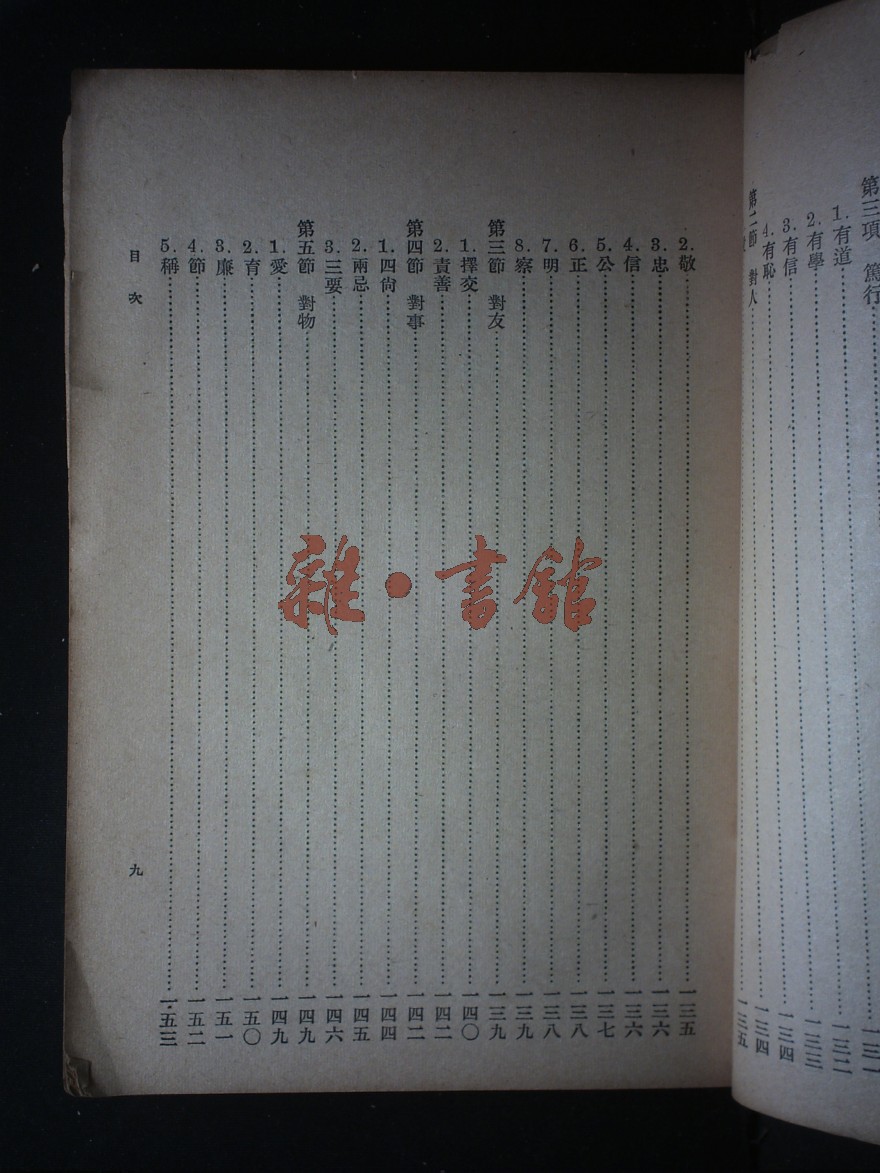 第三項　篤行……一三一
1.有道……一三二
2.有學……一三三
3.有信……一三四
4.有恥……一三四
第二節　對人……一三五
2.敬……一三五
3.忠……一三六
4.信……一三六
5.公……一三七
6.正……一三八
7.明……一三八
8.察……一三九
第三節　對友……一三九
1.擇交……一四〇
2.責善……一四二
第四節　對事……一四二
1.四尙……一四四
2.兩忌……一四五
3.三要……一四六
第五節　對物……一四九
1.愛……一四九
2.育……一五〇
3.廉……一五一
4.節……一五二
5.稱……一五三
目次
九
雜·書館